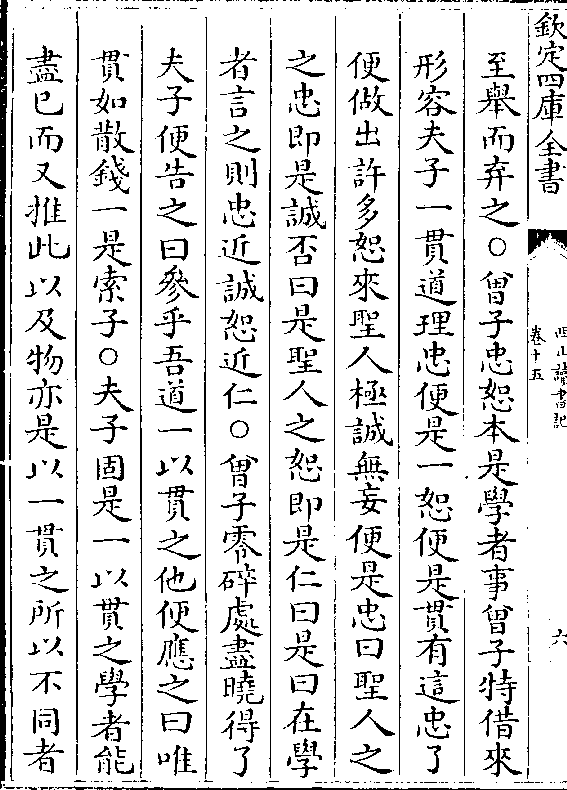 欽定四庫全書
西山讀書記
卷十五
六
至舉而弃之○曾子忠恕本是學者事曾子特借來
形容夫子一貫道理忠便是一恕便是貫有這忠了
便做出許多恕來聖人極誠無妄便是忠曰聖人之
之忠即是誠否曰是聖人之恕即是仁曰是曰在學
者言之則忠近誠恕近仁○曾子零碎處盡曉得了
夫子便告之曰參乎吾道一以貫之他便應之曰唯
貫如散錢一是索子○夫子固是一以貫之學者能
盡已而又推此以及物亦是以一貫之所以不同者